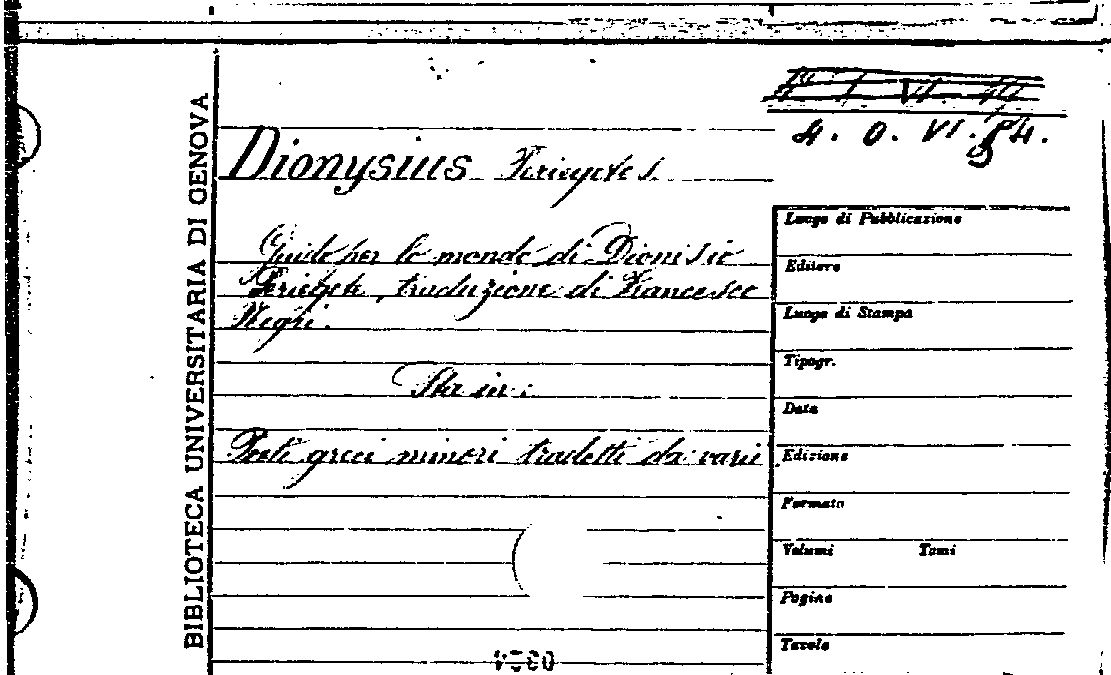 4. O. VI. 84.
BIBLIOTECA UNIVERSITARIA DI GENOVA
Dionysius Periegetes
Guida per lo mondo di Dionisio
Periegete, traduzione di Francesco
Negri.
Sta in:
Poeti greci minori tradotti da varii.
Luogo di Pubblicazione
Editore
Luogo di Stampa
Tipogr.
Data
Edizione
Formato
Volumi Tomi
Pagine
Tavole